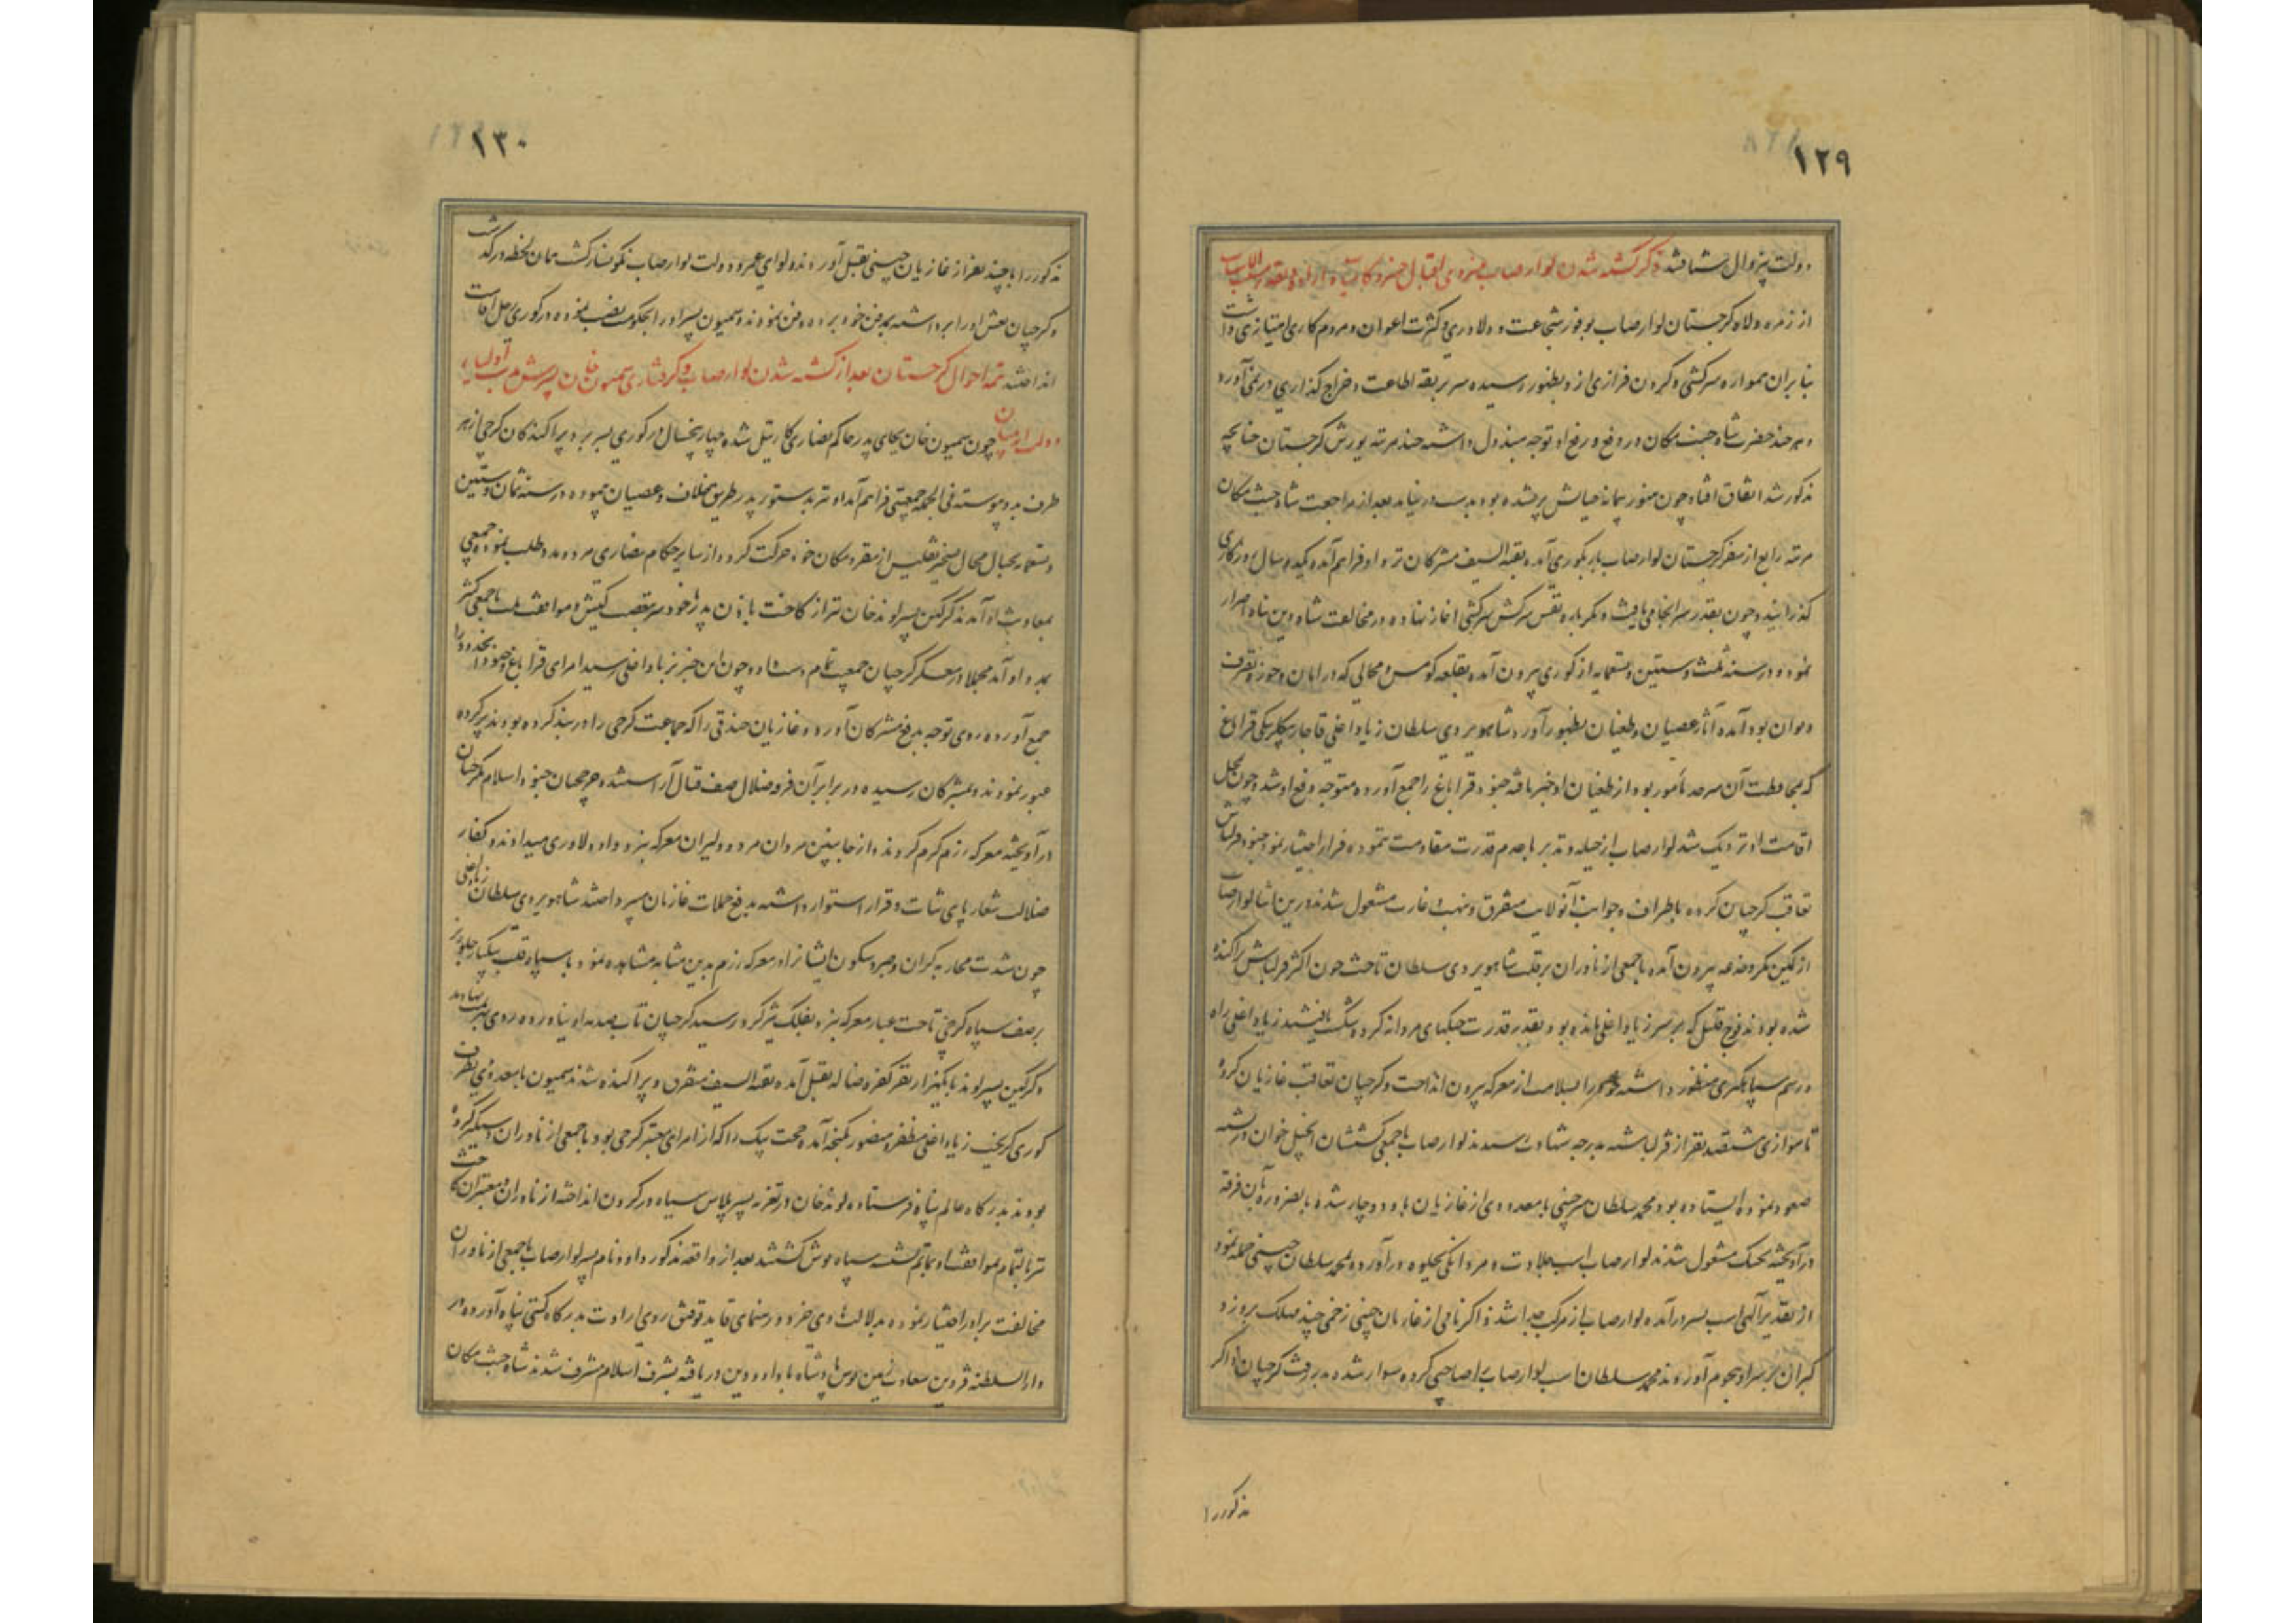 ۱۲۹
دولت بیزوال شتافتند ذکر کشته شدن لوارصاب
از زمره ولاة کرجستان لوارصاب بوفور شجاعت و دلاوری و کثرت اعوان و مردم کاری امتیازی داشت
بنابران همواره سرکشی و کردن فرازی از و بظهور رسیده سر بربقه اطاعت و خراج کذاری در نمی آورد
و هر چند حضرت شاه جنت مکان در دفع و رفع او توجه مبذول داشته چند مرتبه یورش کرجستان چنانچه
مذکور شد اتفاق افتاد چون هنوز پیمانه حیاتش پر نشده بود بدست در نیامد بعد از مراجعت شاه جنت مکان
مرتبه رابع از سفر کرجستان لوارصاب باز بکوری آمده بقیة السیف مشرکان نزد او فراهم آمده یکدو سال روزکاری
کذرانید و چون بقدر سرانجامی یافت دیکر باره نفس سرکش سرکشی اغاز نهاده در مخالفت شاه دین پناه اصرار
نموده در سنه ثلث و ستین و تسعمایه از کوری بیرون آمده بقلعه کوس و محالی که در امان و حوزه تصرف
دیوان بود آمده آثار عصیان و طغیان بظهور آورد شاهویردی سلطان زیاد اغلی قاجار بیکلربیکی قراباغ
که بمحافظت آن سرحد مأمور بود از طغیان او خبر یافته جنود قراباغ را جمع آورده متوجه دفع او شد و چون بمحل
اقامت او نزدیک شد لوارصاب از حیله و تدبیر با عدم قدرت مقاومت ننموده فرار اختیار نمود جنود قزلباش
تعاقب کرجیان کرده باطراف و جوانب آنولایت متفرق و بنهب و غارت مشغول شدند درین اثنا لوارصاب
از کمین مکر و خدعه بیرون آمده با جمعی از ازناوران بر قلب شاهویردی سلطان تاخت چون اکثر قزلباش پراکنده
شده بودند فوج قلیل که بر سر زیاد اغلی مانده بود بقدر قدرت جنکهای مردانه کرده شکست یافتند زیاد اغلی راه
و رسم سپاهکری منظور داشته خود را بسلامت از معرکه بیرون انداخت و کرجیان تعاقب غازیان کرده
تا موازی ششصد نفر از قزلباشیه بدرجه شهادت رسیدند لوارصاب با جمعی کشیشان انجیل خوان در پشته
صعود نموده ایستاده بود محمد سلطان چپنی با معدودی از غازیان باو دوچار شده بالضروره بآن فرقه
درآویخته بجنک مشغول شدند لوارصاب اسب جلادت و مردانکی بجلوه درآورده بمحمد سلطان چپنی حمله نمود
از تقدیر آلهی اسب بسر درآمده لوارصاب از مرکب جدا شد ذاکر نامی از غازیان چپنی زخمی چند مهلک برو زد
کبران بر سر او هجوم آوردند محمد سلطان اسب لوارصاب را صاحبی کرده سوار شده بدر رفت کرجیان ذاکر
مذکور را
۱۳۰
مذکور را با چند نفر از غازیان چپنی بقتل آوردند و لوای عمر و دولت لوارصاب نکونسار کشت همان لحظه درکذشت
و کرجیان نعش او را برداشته بمدفن خود برده دفن نمودند و سمیون پسر او را بحکومت نصب نموده در کوری رحل اقامت
انداختند تتمه احوال کرجستان بعد از کشته شدن لوارصاب و کرفتاری سمیون خان پسرش
چون سمیون خان بجای پدر حاکم نصاری کارتیل شده چهار پنجسال در کوری بسر برد پراکندکان کرجی از هر
طرف بدو پیوسته فی الجمله جمعیتی فراهم آمد او نیز بدستور پدر طریق خلاف و عصیان پیموده در سنه ثمان و ستین
و تسعمایه بخیال محال تسخیر تفلیس از مقر و مکان خود حرکت کرد و از سایر حکام نصاری مرد و مدد طلب نموده جمعی
بمعاونت او آمدند کرکین پسر لوند خان نیز از کاخت باذن پدر یا خودسر بتعصب کیش و موافقت ملت با جمعی کثیر
بمدد او آمد مجملا در معسکر کرجیان جمعیت تمام دست داد و چون این خبر بزیاد اغلی رسید امرای قراباغ و جنود خود را
جمع آورده روی توجه بدفع مشرکان آورد و غازیان خندقی را که جماعت کرجی راه در بند کرده بودند پر کرده
عبور نمودند و بمشرکان رسیده در برابر آن فرقه ضلال صف قتال آراستند و چرخچیان جنود اسلام بکرجیان
درآویخته معرکه رزم کرم کردند و از جانبین مردان مرد و دلیران معرکه نبرد داد دلاوری میدادند و کفار
ضلالت شعار پای ثبات و قرار استوار داشته بدفع حملات غازیان میپرداختند شاهویردی سلطان زیاد اغلی
چون شدت محاربه کبران و صبر و سکون ایشانرا در معرکه رزم بدین مثابه مشاهده نمود با سپاه قلب بیکبار جلوریز
بر صف سپاه کرجی تاخت غبار معرکه نبرد بفلک تیزکرد رسید کرجیان تاب صدمه او نیاورده روی بهزیمت نهادند
و کرکین پسر لوند با یکهزار نفر کفره ضاله بقتل آمده بقیة السیف متفرق و پراکنده شدند سمیون با معدودی بطرف
کوری کریخت زیاد اغلی مظفر و منصور بکنجه آمده بیک را که از امرای معتبر کرجی بود با جمعی از ازناوران دستکیر کرده
بودند بدرکاه عالم پناه فرستاد و لوند خان در تعزیه پسر پلاس سیاه در کردن انداخته ازناوران و معتبران کاخت
نیز بالتمام بموافقت او بماتم نشسته سیاه پوش کشتند بعد از واقعه مذکور داود نام پسر لوارصاب با جمعی از ازناوران
مخالفت برادر اختیار نموده بدلالت هادی خرد و رهنمای قاید توفیق روی ارادت بدرکاه کیتی پناه آورده در
دار السلطنه قزوین سعادت زمین بوس پادشاه با داد و دین دریافته بشرف اسلام مشرف شدند شاه جنت مکان